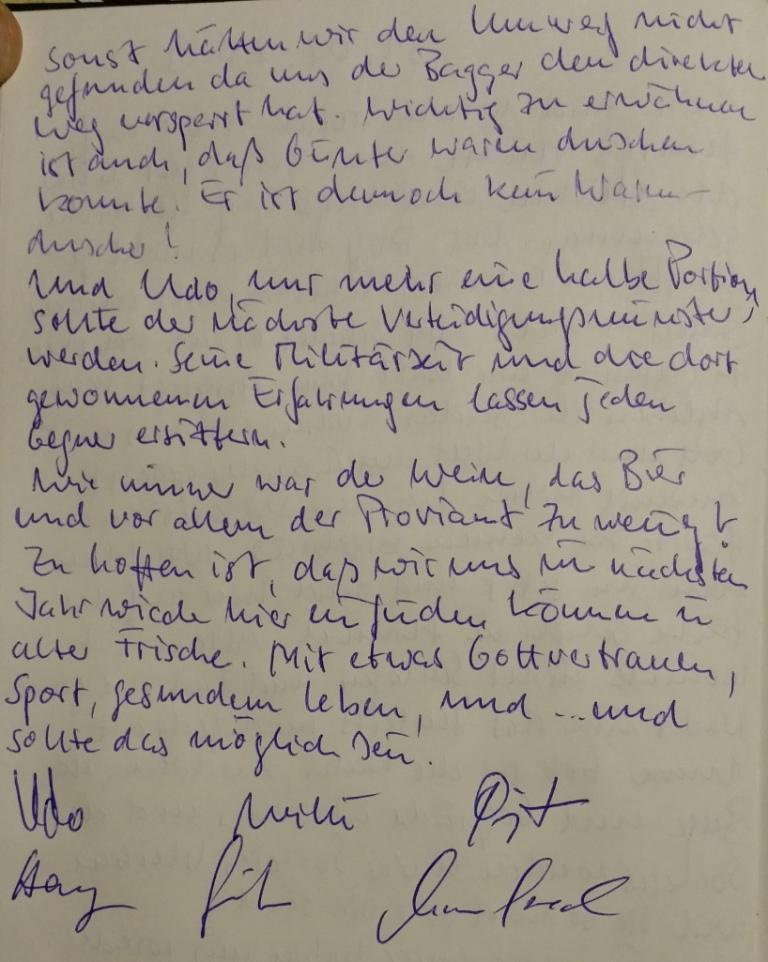 sonst hätten wir den Umweg nicht
gefunden da uns der Bagger den direkten
Weg versperrt hat. Wichtig zu erwähnen
ist auch, daß Günter warm duschen
konnte. Er ist dennoch kein Warm-
duscher!
Und Udo, nur mehr eine halbe Portion,
sollte der nächste Verteidigungsminister
werden. Seine Militärzeit und die dort
gewonnenen Erfahrungen lassen jeden
Gegner erzittern.
Wie immer war der Wein, das Bier
und vor allem der Proviant zu wenig!
Zu hoffen ist, daß wir uns im nächsten
Jahr wieder hier einfinden können in
alter Frische. Mit etwas Gottvertrauen,
Sport, gesundem Leben, und ... und
sollte das möglich sein!
Udo